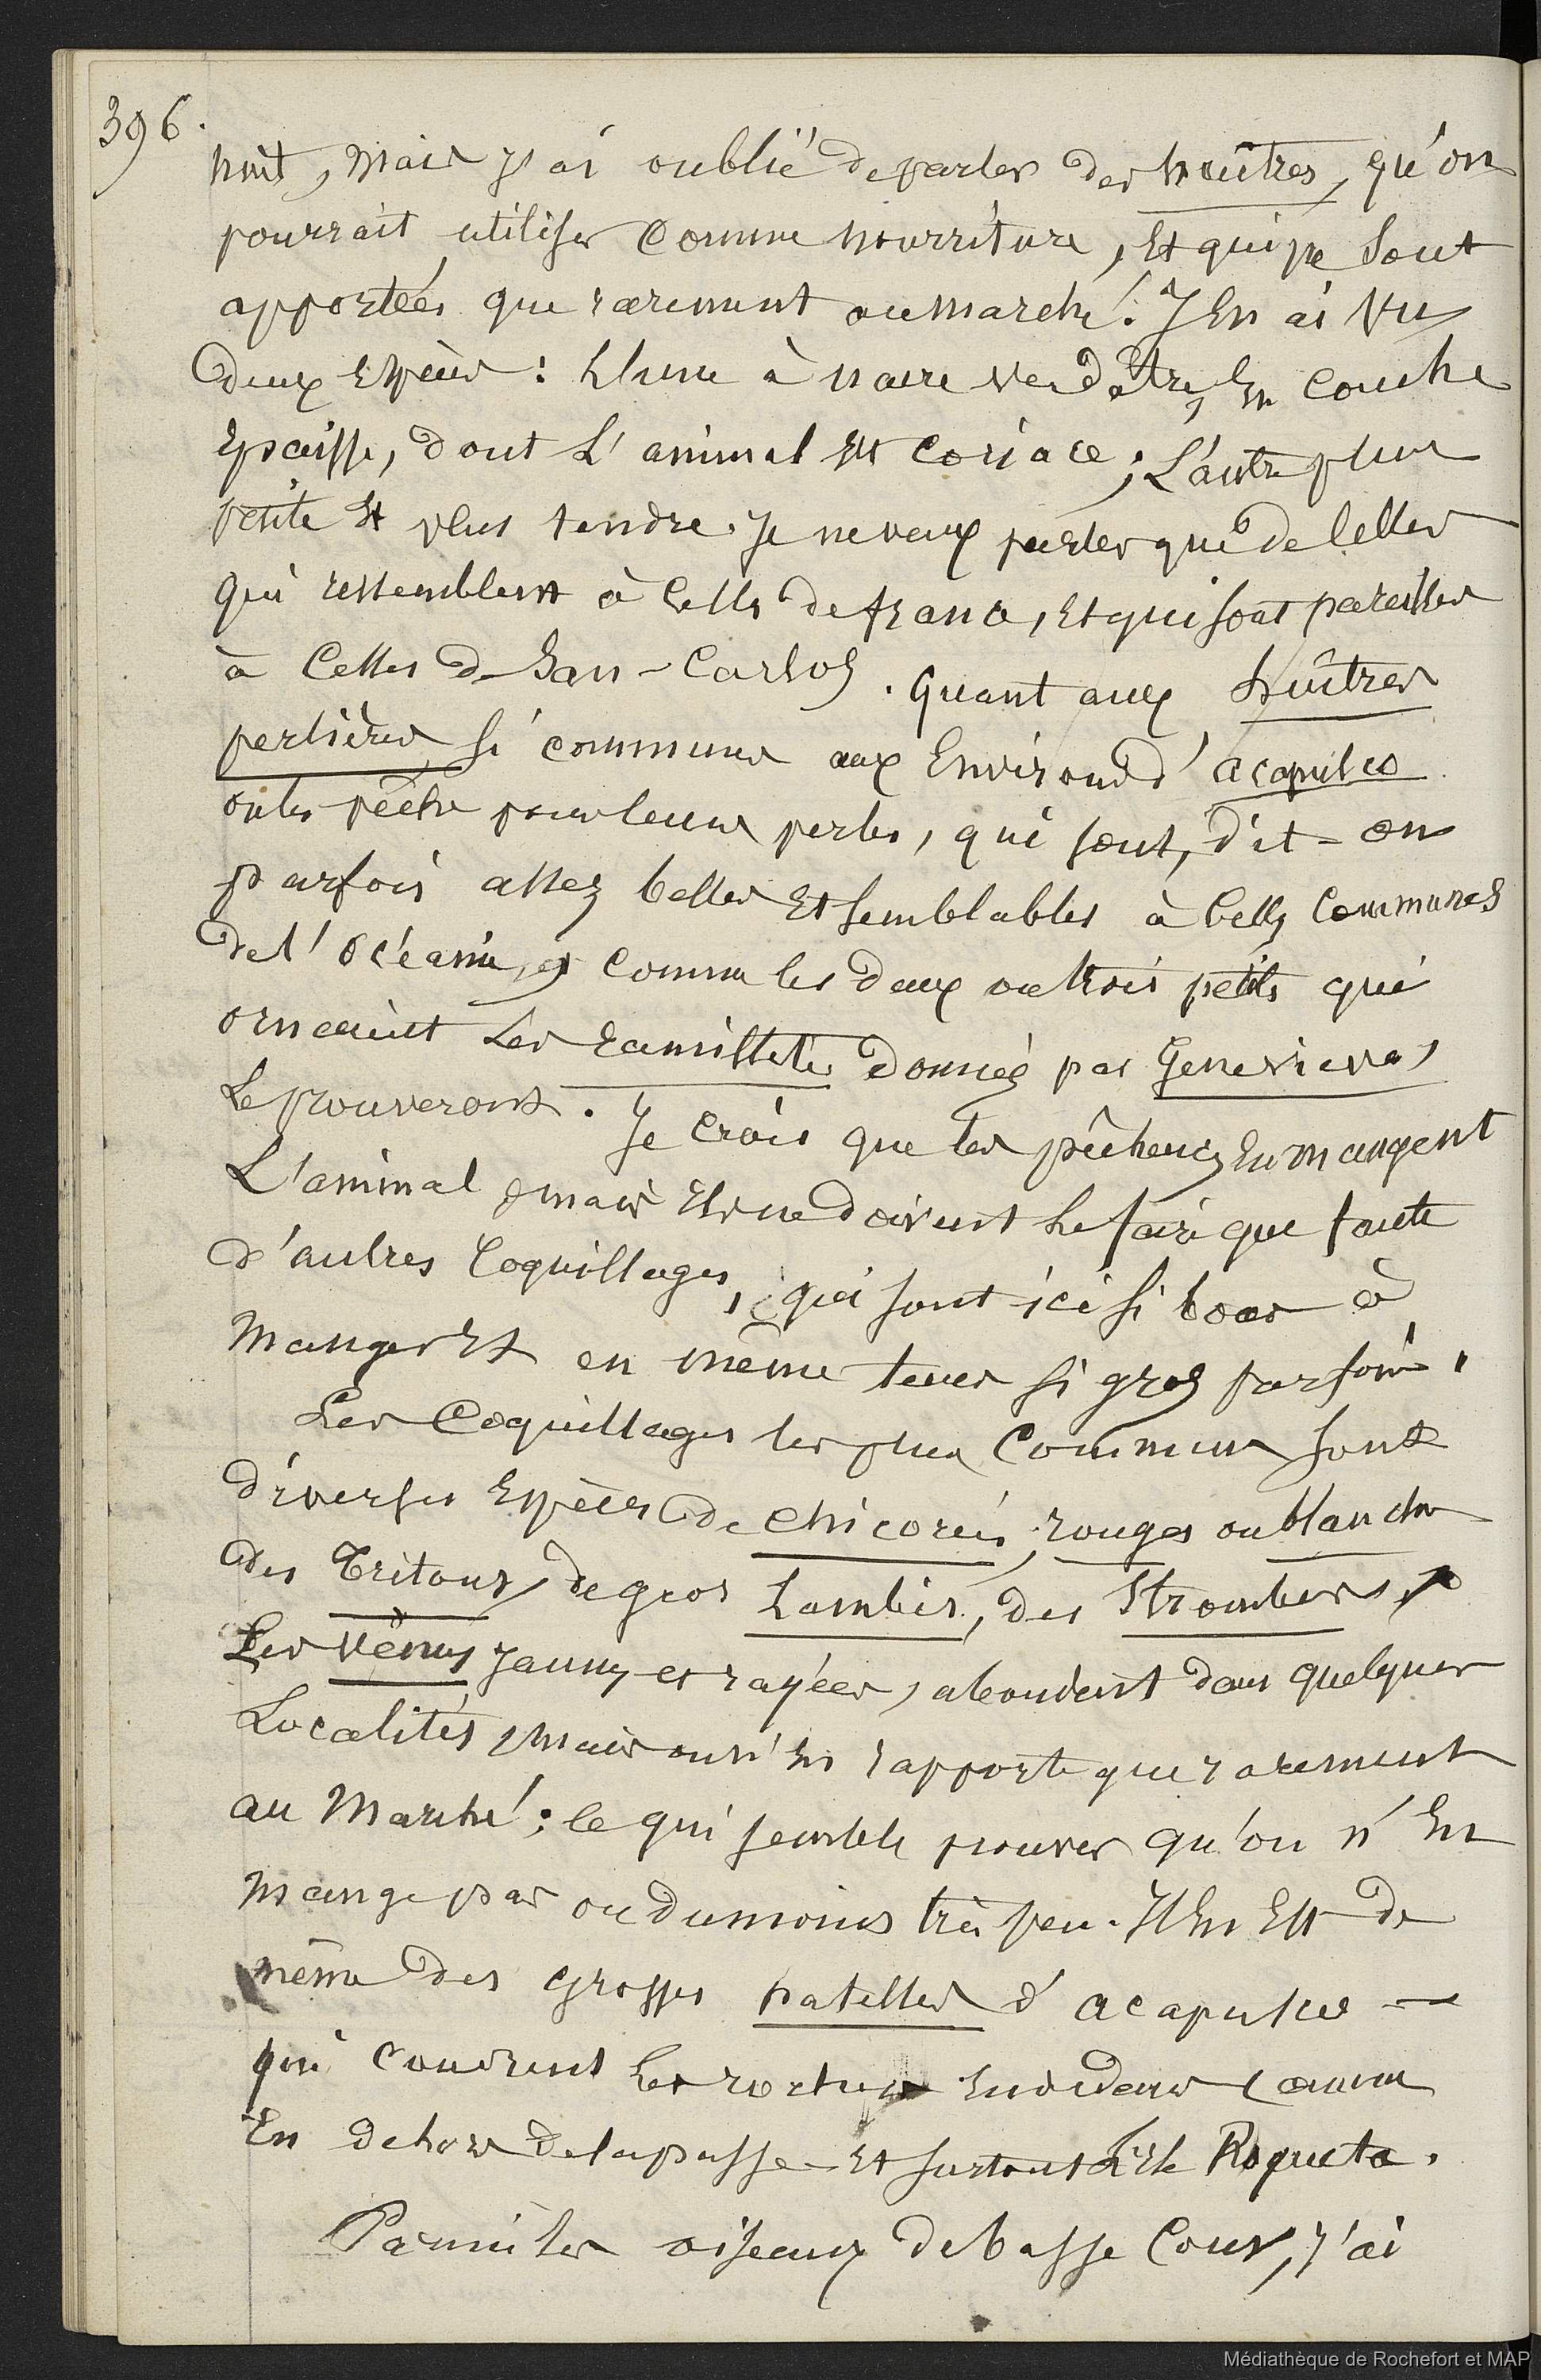 396.
nuit, mais j'ai oublié de parler des huîtres, qu'on
pourrait utiliser comme nourriture, et qui ne sont
apportées que rarement au marché. J'en ai vu
deux espèces : l'une à nacre verdâtre, en couche
épaisse, dont l'animal est coriace ; l'autre plus
petite et plus tendre. Je ne veux parler que de celles
qui ressemblent à celles de france, et qui sont pareilles
à celles de San-Carlos. Quant aux huîtres
perlières si communes aux environs d'acapulco
on les pêche pour leurs perles, qui sont, dit-on
parfois assez belles et semblables à celles communes
de l'océanie, comme les deux ou trois petits qui
ornaient les ramilletes donnés par Genevieva,
le prouveront. Je crois que les pêcheurs en mangent
l'animal, mais ils ne doivent le faire que faute
d'autres coquillages, qui sont ici si bons à
manger et en même temps si gros parfois.
Les coquillages les plus communs sont
diverses espèces de chicorées, rouges ou blanches
des Tritons, de gros Lambis, des Strombes,
Les Vénus jaunes et rayées, abondent dans quelques
localités, mais on n'en rapporte que rarement
au marché ; ce qui semble prouver qu'on n'en
mange pas ou du moins très peu. Il en est de
même des grosses patelles d'acapulco —
qui couvrent les roches en dedans comme
en dehors de la passe et surtout l'île Roqueta.
Parmi les oiseaux de basse cour, j'ai
Médiathèque de Rochefort et MAP